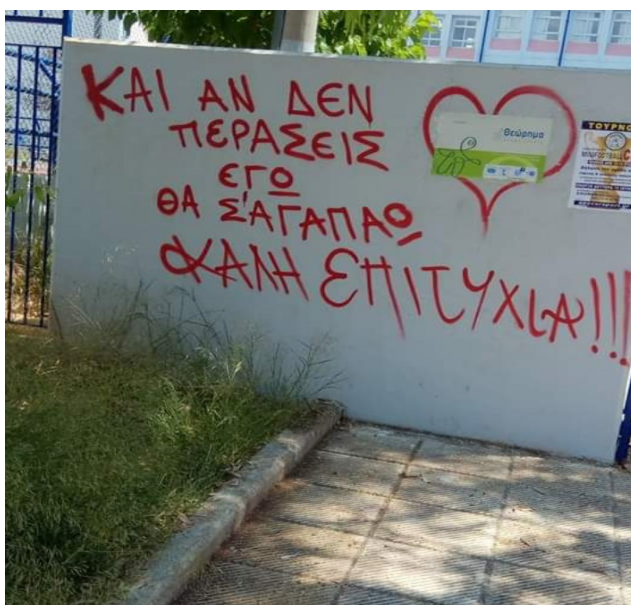 ΚΑΙ ΑΝ ΔΕΝ
ΠΕΡΑΣΕΙΣ
ΕΓΟ
ΘΑ Σ'ΑΓΑΠΑΟ
ΚΑΛΗ ΕΠΙΤΥΧΙΑ!!!
θεώρημα
ΤΟΥΡΝΟ